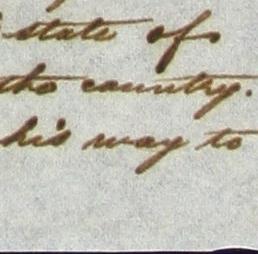 state of
the country.
his way to